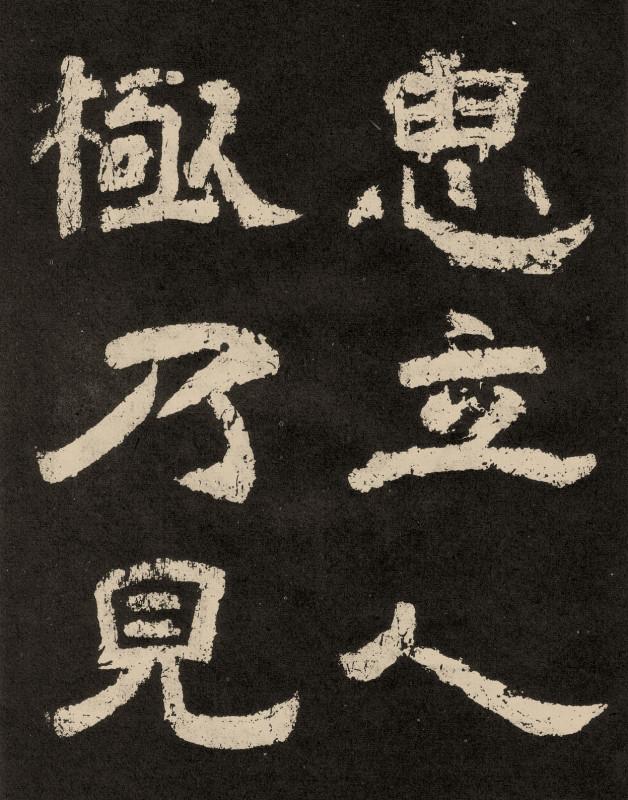 思立人
極乃見